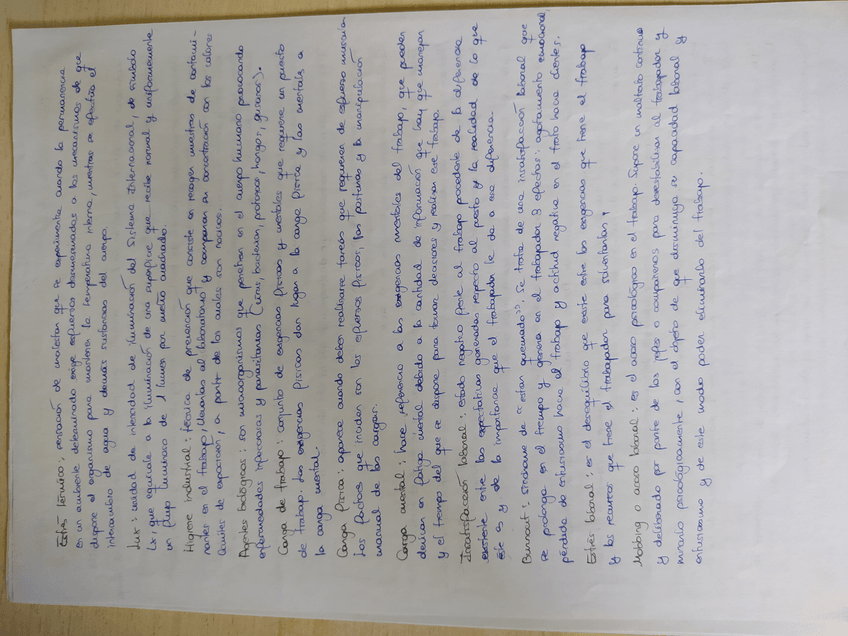 Estrés térmico: sensación de malestar que se experimenta cuando la permanencia
en un ambiente determinado exige esfuerzos desmesurados a los mecanismos de que
dispone el organismo para mantener la temperatura interna, mientras se efectúa el
intercambio de agua y demás sustancias del cuerpo.
Lux: unidad de intensidad de iluminación del Sistema Internacional, de símbolo
Lx, que equivale a la iluminación de una superficie que recibe normal y uniformemente
un flujo luminoso de 1 lumen por metro cuadrado.
Higiene industrial: técnica de prevención que consiste en recoger muestras de contami-
nantes en el trabajo, llevarlas al laboratorio y comparar su concentración con los valores
límites de exposición, a partir de los cuales son nocivos.
Agentes biológicos: son microorganismos que penetran en el cuerpo humano provocando
enfermedades infecciosas y parasitarias (virus, bacterias, protozoos, hongos, gusanos).
Carga de trabajo: conjunto de exigencias físicas y mentales que requiere un puesto
de trabajo. Las exigencias físicas dan lugar a la carga física y las mentales, a
la carga mental.
Carga física: aparece cuando deben realizarse tareas que requieren de esfuerzo muscular.
Los factores que inciden son los esfuerzos físicos, las posturas y la manipulación
manual de las cargas.
Carga mental: hace referencia a las exigencias mentales del trabajo, que pueden
derivar en fatiga mental debido a la cantidad de información que hay que manejar
y el tiempo del que se dispone para tomar decisiones y realizar ese trabajo.
Insatisfacción laboral: estado negativo frente al trabajo procedente de la diferencia
existente entre las expectativas generadas respecto al puesto y la realidad de lo que
éste es y de la importancia que el trabajador le da a esa diferencia.
Burnout: síndrome de "estar quemado". Se trata de una insatisfacción laboral que
se prolonga en el tiempo y genera en el trabajador 3 efectos: agotamiento emocional,
pérdida de entusiasmo hacia el trabajo y actitud negativa en el trato hacia clientes.
Estrés laboral: es el desequilibrio que existe entre las exigencias que tiene el trabajo
y los recursos que tiene el trabajador para solventarlas.
Mobbing o acoso laboral: es el acoso psicológico en el trabajo. Supone un maltrato continuo
y deliberado por parte de los jefes o compañeros para desestabilizar al trabajador y
minarlo psicológicamente, con el objeto de que disminuya su capacidad laboral y
entusiasmo y de este modo poder eliminarlo del trabajo.